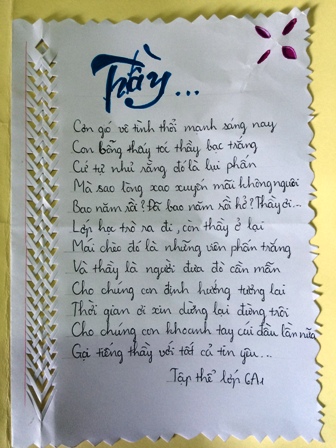 Thầy...
Cơn gió vô tình thổi mạnh sáng nay
Con bỗng thấy tóc thầy bạc trắng
Cứ tự nhủ rằng đó là bụi phấn
Mà sao lòng xao xuyến mãi không nguôi
Bao năm rồi? Đã bao năm rồi hở? Thầy ơi...
Lớp học trò ra đi, còn thầy ở lại
Mái chèo đó là những viên phấn trắng
Và thầy là người đưa đò cần mẫn
Cho chúng con định hướng tương lai
Thời gian ơi xin dừng lại đừng trôi
Cho chúng con khoanh tay cúi đầu lần nữa
Gọi tiếng thầy với tất cả tin yêu...
Tập thể lớp 6A1